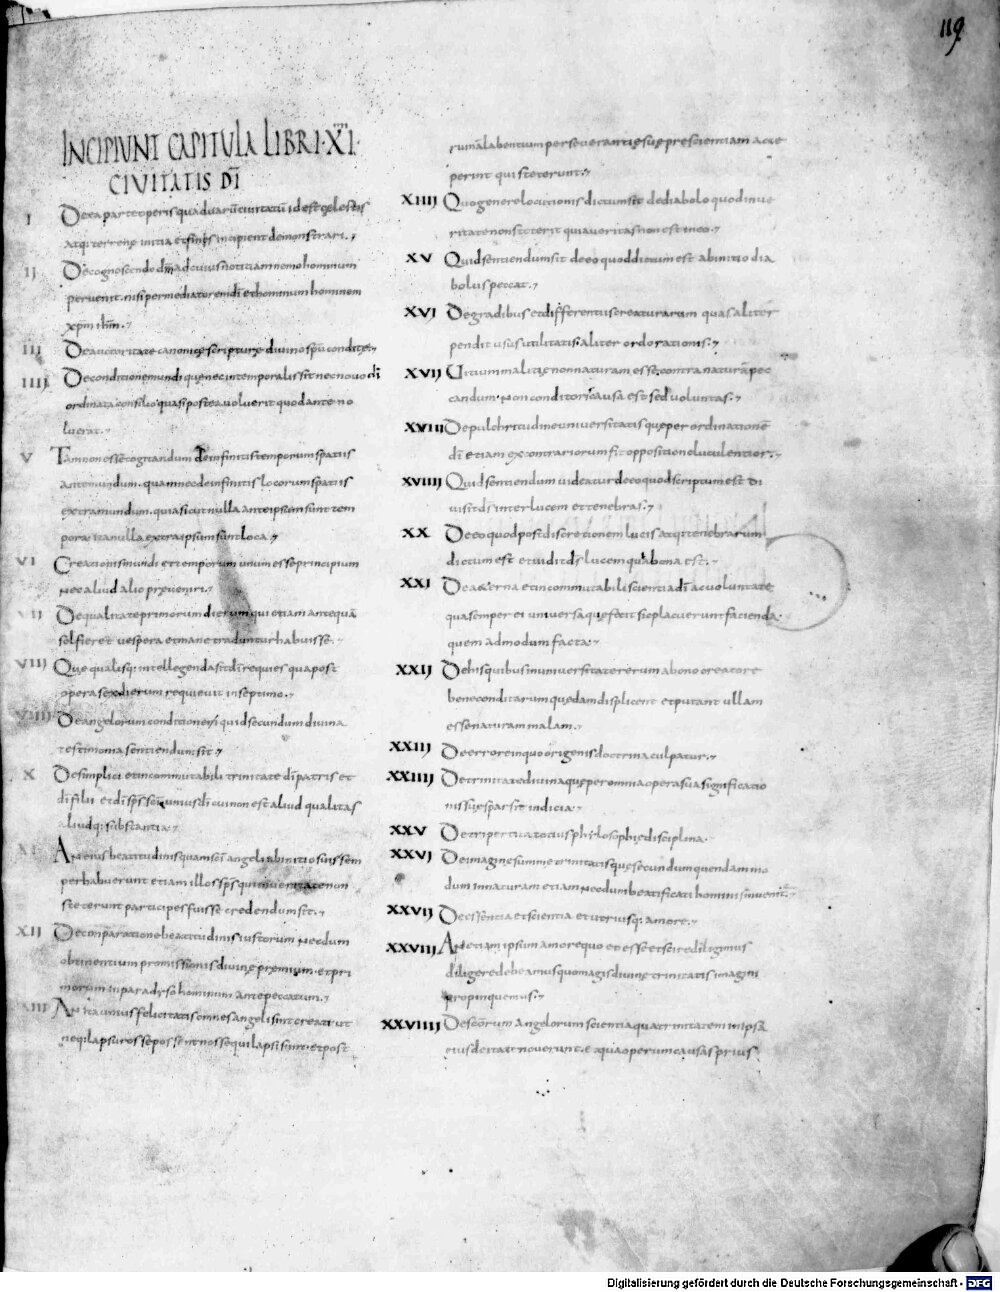 119
INCIPIUNT CAPITULA LIBRI·XI·
CIVITATIS DI
I De ea parte operis qua duarū civitatū id est cęlestis
atq; terrenę initia et fines incipient demonstrari.
II De cognoscendo dō ad cuius notitiam nemo hominum
pervenit. nisi per mediatorem dī et hominum hominem
xpm ihm.
III De auctoritate canonicę scripturę divino spū conditę
IIII De conditione mundi quę nec intemporalis sit nec novo dī
ordinata consilio quasi postea voluerit quod ante no
luerat.
V Tam non esse cogitandum de infinitis temporum spatiis
ante mundum. quam nec de infinitis locorum spatiis
extra mundum. quia sicut nulla ante ipsum sunt tem
pora ita nulla extra ipsum sunt loca.
VI Creationis mundi et temporum unum esse principium
nec aliud alio preveniri.
VII De qualitate primorum dierum qui etiam antequā
sol fieret vespera et mane traduntur habuisse.
VIII Quę qualisq; intellegenda sit dī requies qua post
opera sex dierum requievit in septimo.
VIIII De angelorum conditione quid secundum divina
testimonia sentiendum sit
X De simplici et incommutabili trinitate dī patris et
dī filii et dī sps sci unius dī cui non est aliud qualitas
aliudq; substantia
XI An eius beatitudinis quam sci angeli ab initio sui sem
per habuerunt etiam illos sps qui in veritate non
steterunt participes fuisse credendum sit.
XII De comparatione beatitudinis iustorum necdum
obtinentium promissionis divinę premium. et pri
morum in paradyso hominum ante peccatum.
XIII An ita unius felicitatis omnes angeli sint creati ut
neq; lapsuros se possent nosse qui lapsi sunt. et post
ruinā labentium perseverantię suę prescientiam acce
perint qui steterunt.
XIIII Quo genere locutionis dictum sit de diabolo quod in ve
ritate non steterit quia veritas non est in eo.
XV Quid sentiendum sit de eo quod dictum est ab initio dia
bolus peccat.
XVI De gradibus et differentiis creaturarum quas aliter
pendit usus utilitatis aliter ordo rationis.
XVII Vitium malitię non naturam esse. contra naturā pec
candum. non conditor causa est sed voluntas.
XVIII De pulchritudine universitatis quę per ordinatione
dī etiam ex contrariorum fit oppositione luculentior.
XVIIII Quid sentiendum videatur de eo quod scriptum est di
visit dś inter lucem et tenebras.
XX De eo quod post discretionem lucis atq; tenebrarum
dictum est et vidit dś lucem quia bona est.
XXI De aeterna et incommutabili scientia dī ac voluntate
qua semper ei universa quę fecit sic placuerunt facienda
quem admodum facta.
XXII De his quibus in universitate rerum a bono creatore
bene conditarum quędam displicent et putant ullam
esse naturam malam.
XXIII De errore in quo origenis doctrina culpatur.
XXIIII De trinitate divina quę per omnia opera sua significatio
nis suę sparsit indicia.
XXV De tripertita totius philosophię disciplina.
XXVI De imagine summę trinitatis quę secundum quendam mo
dum in natura etiam necdum beatificati hominis invenit.
XXVII De essentia et scientia et utriusq; amore.
XXVIII An etiam ipsum amorem quo et esse et scire diligimus
diligere debeamus quo magis divinę trinitatis imagini
propinquemus.
XXVIIII De scorum angelorum scientia qua trinitatem in ipsa
eius deitate noverunt. et qua operum causas prius
Digitalisierung gefördert durch die Deutsche Forschungsgemeinschaft - DFG